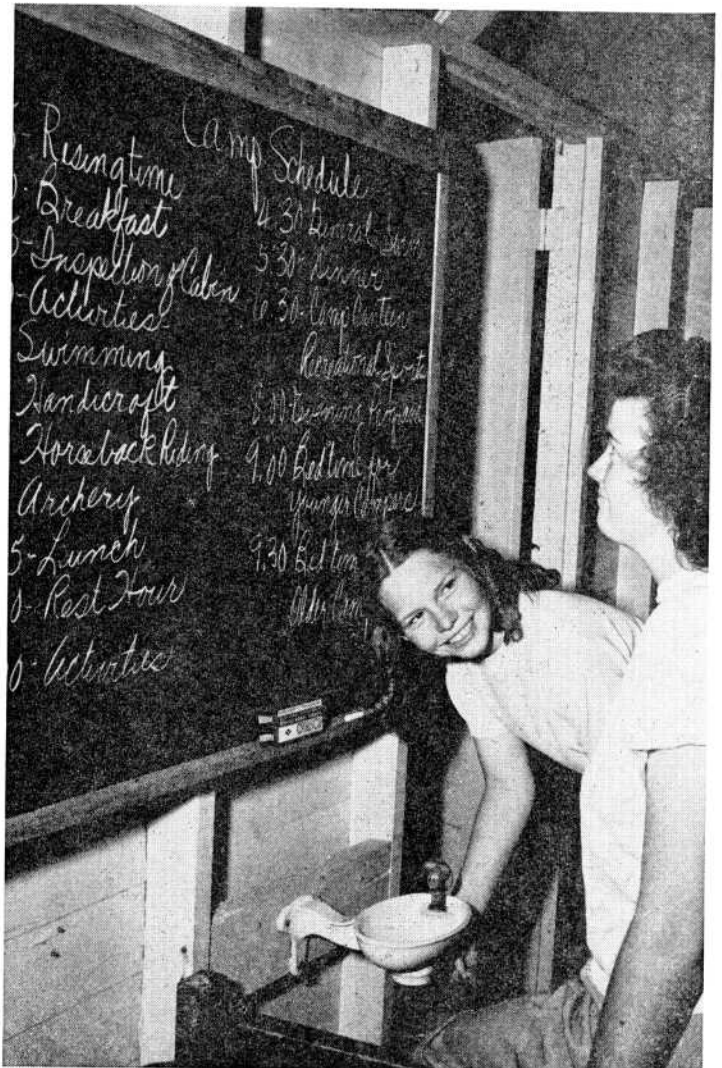 Camp Schedule
5- Rising time
0- Breakfast
5- Inspection of Cabin
0- Activities
Swimming
Handicraft
Horseback Riding
Archery
5- Lunch
0- Rest Hour
0- Activities
4.30 General Swim
5.30- Dinner
6.30- Camp Canteen
Recreational Sports
8.00 Evening Program
9.00 Bedtime for
Younger Campers
9.30 Bedtim
Older Cam